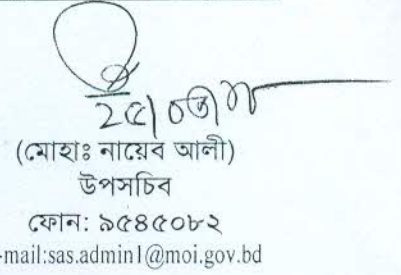 ২৫|০৩|
(মোহাঃ নায়েব আলী)
উপসচিব
ফোন: ৯৫৪৫০৮২
-mail:sas.admin1@moi.gov.bd